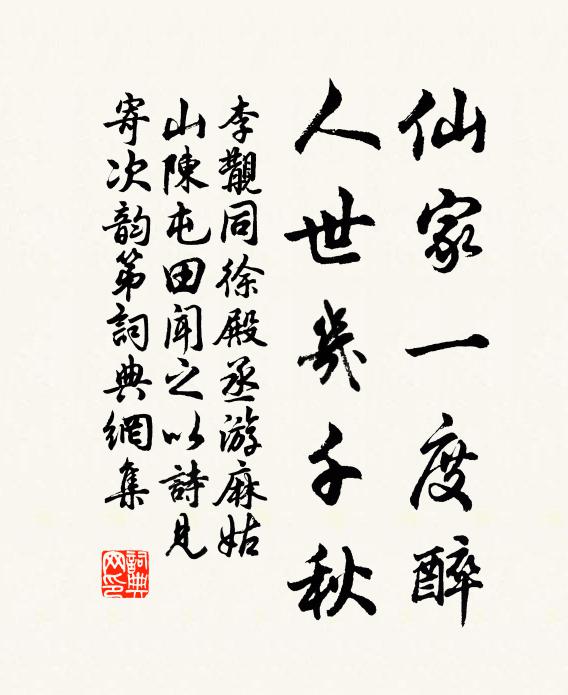 仙家一度醉
人世幾千秋
李覯同徐殿丞游麻姑
山陳屯田聞之以詩見
寄次韵第詞典網集
詞典网印